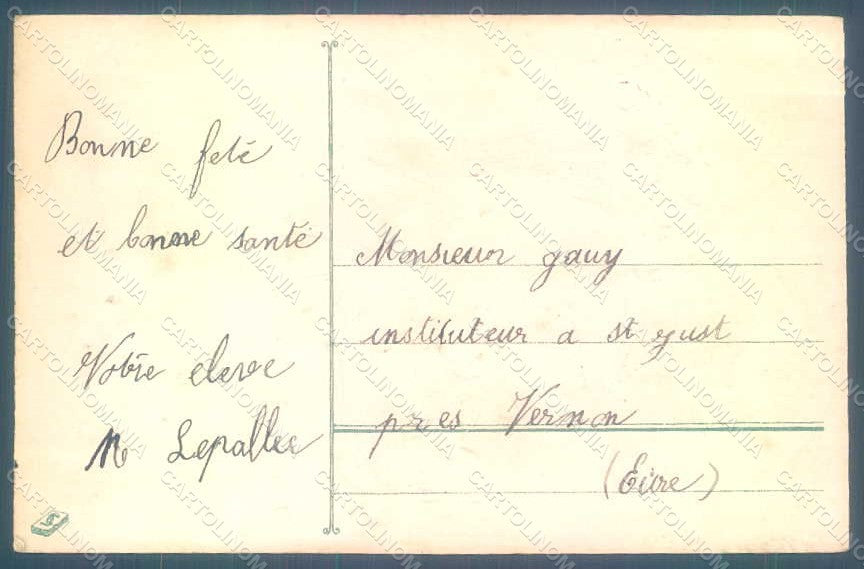 Bonne feté
et bonne santé
Votre eleve
M Lepallec
Monsieur gauy
instituteur a st yust
pres Vernon
(Eure)
CARTOLINOMANIA